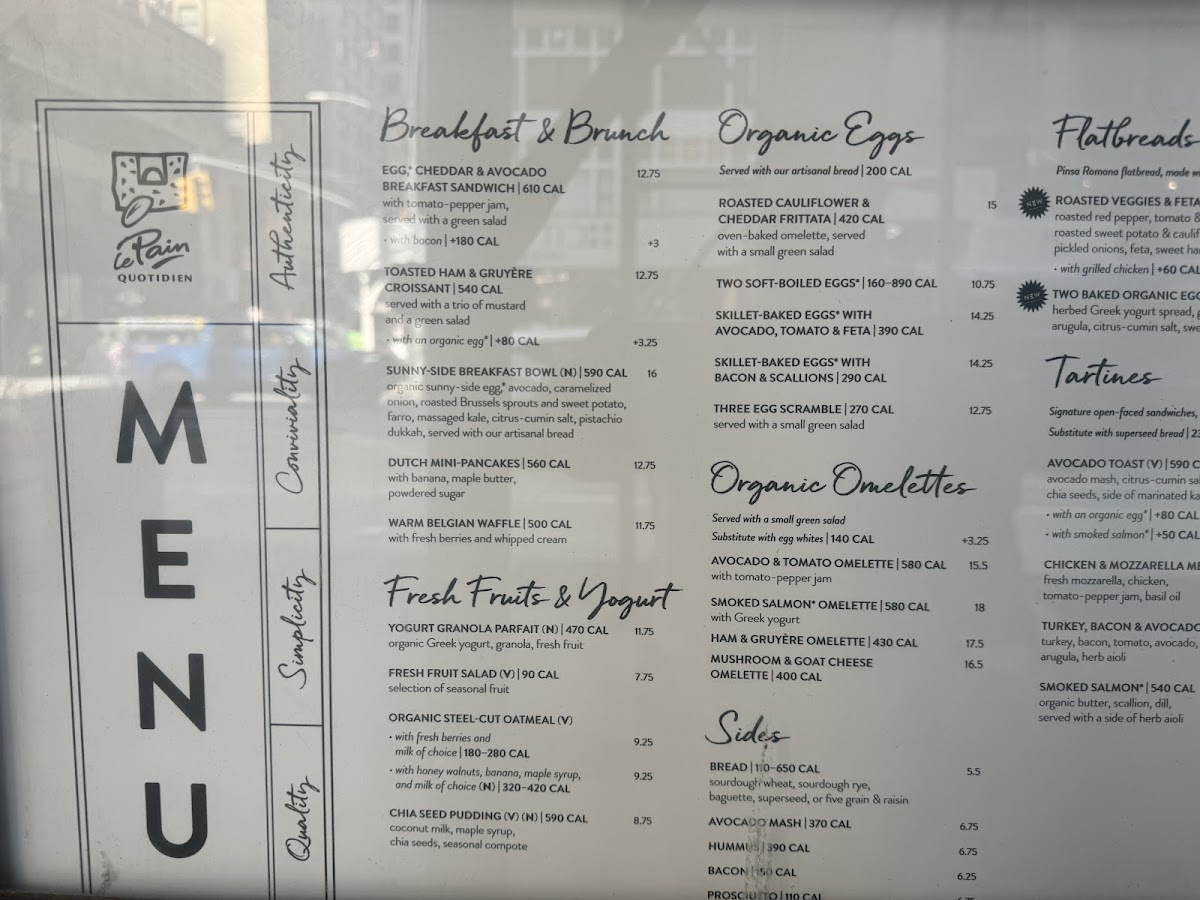 Le Pain
QUOTIDIEN
MENU
Authenticity
Conviviality
Simplicity
Quality
Breakfast & Brunch
EGG,* CHEDDAR & AVOCADO
BREAKFAST SANDWICH | 610 CAL 12.75
with tomato-pepper jam,
served with a green salad
• with bacon | +180 CAL +3
TOASTED HAM & GRUYÈRE 12.75
CROISSANT | 540 CAL
served with a trio of mustard
and a green salad
• with an organic egg* | +80 CAL +3.25
SUNNY-SIDE BREAKFAST BOWL (N) | 590 CAL 16
organic sunny-side egg,* avocado, caramelized
onion, roasted Brussels sprouts and sweet potato,
farro, massaged kale, citrus-cumin salt, pistachio
dukkah, served with our artisanal bread
DUTCH MINI-PANCAKES | 560 CAL 12.75
with banana, maple butter,
powdered sugar
WARM BELGIAN WAFFLE | 500 CAL 11.75
with fresh berries and whipped cream
Fresh Fruits & Yogurt
YOGURT GRANOLA PARFAIT (N) | 470 CAL 11.75
organic Greek yogurt, granola, fresh fruit
FRESH FRUIT SALAD (V) | 90 CAL 7.75
selection of seasonal fruit
ORGANIC STEEL-CUT OATMEAL (V)
• with fresh berries and 9.25
milk of choice | 180-280 CAL
• with honey walnuts, banana, maple syrup, 9.25
and milk of choice (N) | 320-420 CAL
CHIA SEED PUDDING (V) (N) | 590 CAL 8.75
coconut milk, maple syrup,
chia seeds, seasonal compote
Organic Eggs
Served with our artisanal bread | 200 CAL
ROASTED CAULIFLOWER & 15
CHEDDAR FRITTATA | 420 CAL
oven-baked omelette, served
with a small green salad
TWO SOFT-BOILED EGGS* | 160-890 CAL 10.75
SKILLET-BAKED EGGS* WITH 14.25
AVOCADO, TOMATO & FETA | 390 CAL
SKILLET-BAKED EGGS* WITH 14.25
BACON & SCALLIONS | 290 CAL
THREE EGG SCRAMBLE | 270 CAL 12.75
served with a small green salad
Organic Omelettes
Served with a small green salad
Substitute with egg whites | 140 CAL +3.25
AVOCADO & TOMATO OMELETTE | 580 CAL 15.5
with tomato-pepper jam
SMOKED SALMON* OMELETTE | 580 CAL 18
with Greek yogurt
HAM & GRUYÈRE OMELETTE | 430 CAL 17.5
MUSHROOM & GOAT CHEESE 16.5
OMELETTE | 400 CAL
Sides
BREAD | 110-650 CAL 5.5
sourdough wheat, sourdough rye,
baguette, superseed, or five grain & raisin
AVOCADO MASH | 370 CAL 6.75
HUMMUS | 390 CAL 6.75
BACON | 150 CAL 6.25
PROSCIUTTO | 110 CAL
Flatbreads
Pinsa Romana flatbread, made
NEW
ROASTED VEGGIES & FETA
roasted red pepper, tomato &
roasted sweet potato &
pickled onions, feta, sweet
• with grilled chicken | +60 CAL
NEW
TWO BAKED ORGANIC
herbed Greek yogurt spread,
arugula, citrus-cumin salt,
Tartines
Signature open-faced sandwiches,
Substitute with superseed bread |
AVOCADO TOAST (V) | 590
avocado mash, citrus-cumin
chia seeds, side of marinated
• with an organic egg* | +80 CAL
• with smoked salmon* | +50 CAL
CHICKEN & MOZZARELLA
fresh mozzarella, chicken,
tomato-pepper jam, basil oil
TURKEY, BACON & AVOCADO
turkey, bacon, tomato, avocado,
arugula, herb aioli
SMOKED SALMON* | 540 CAL
organic butter, scallion, dill,
served with a side of herb aioli